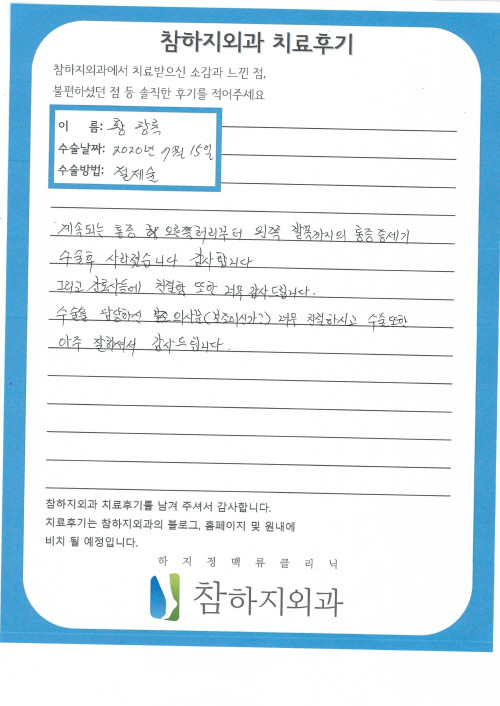 참하지외과 치료후기
참하지외과에서 치료받으신 소감과 느낀 점,
불편하셨던 점 등 솔직한 후기를 적어주세요
이 름: 황
수술날짜: 2020년 7월 15일
수술방법: 절제술
계속되는 통증 오른쪽허리부터 왼쪽 발목까지의 통증증세가
수술후 사라졌습니다 감사합니다
그리고 간호사들에 친절함 또한 너무 감사드립니다.
수술을 담당하신 의사분(보조이신가?) 너무 친절하시고 수술또한
아주 잘하셔서 감사드립니다.
참하지외과 치료후기를 남겨 주셔서 감사합니다.
치료후기는 참하지외과의 블로그, 홈페이지 및 원내에
비치 될 예정입니다.
하지정맥류클리닉
참하지외과